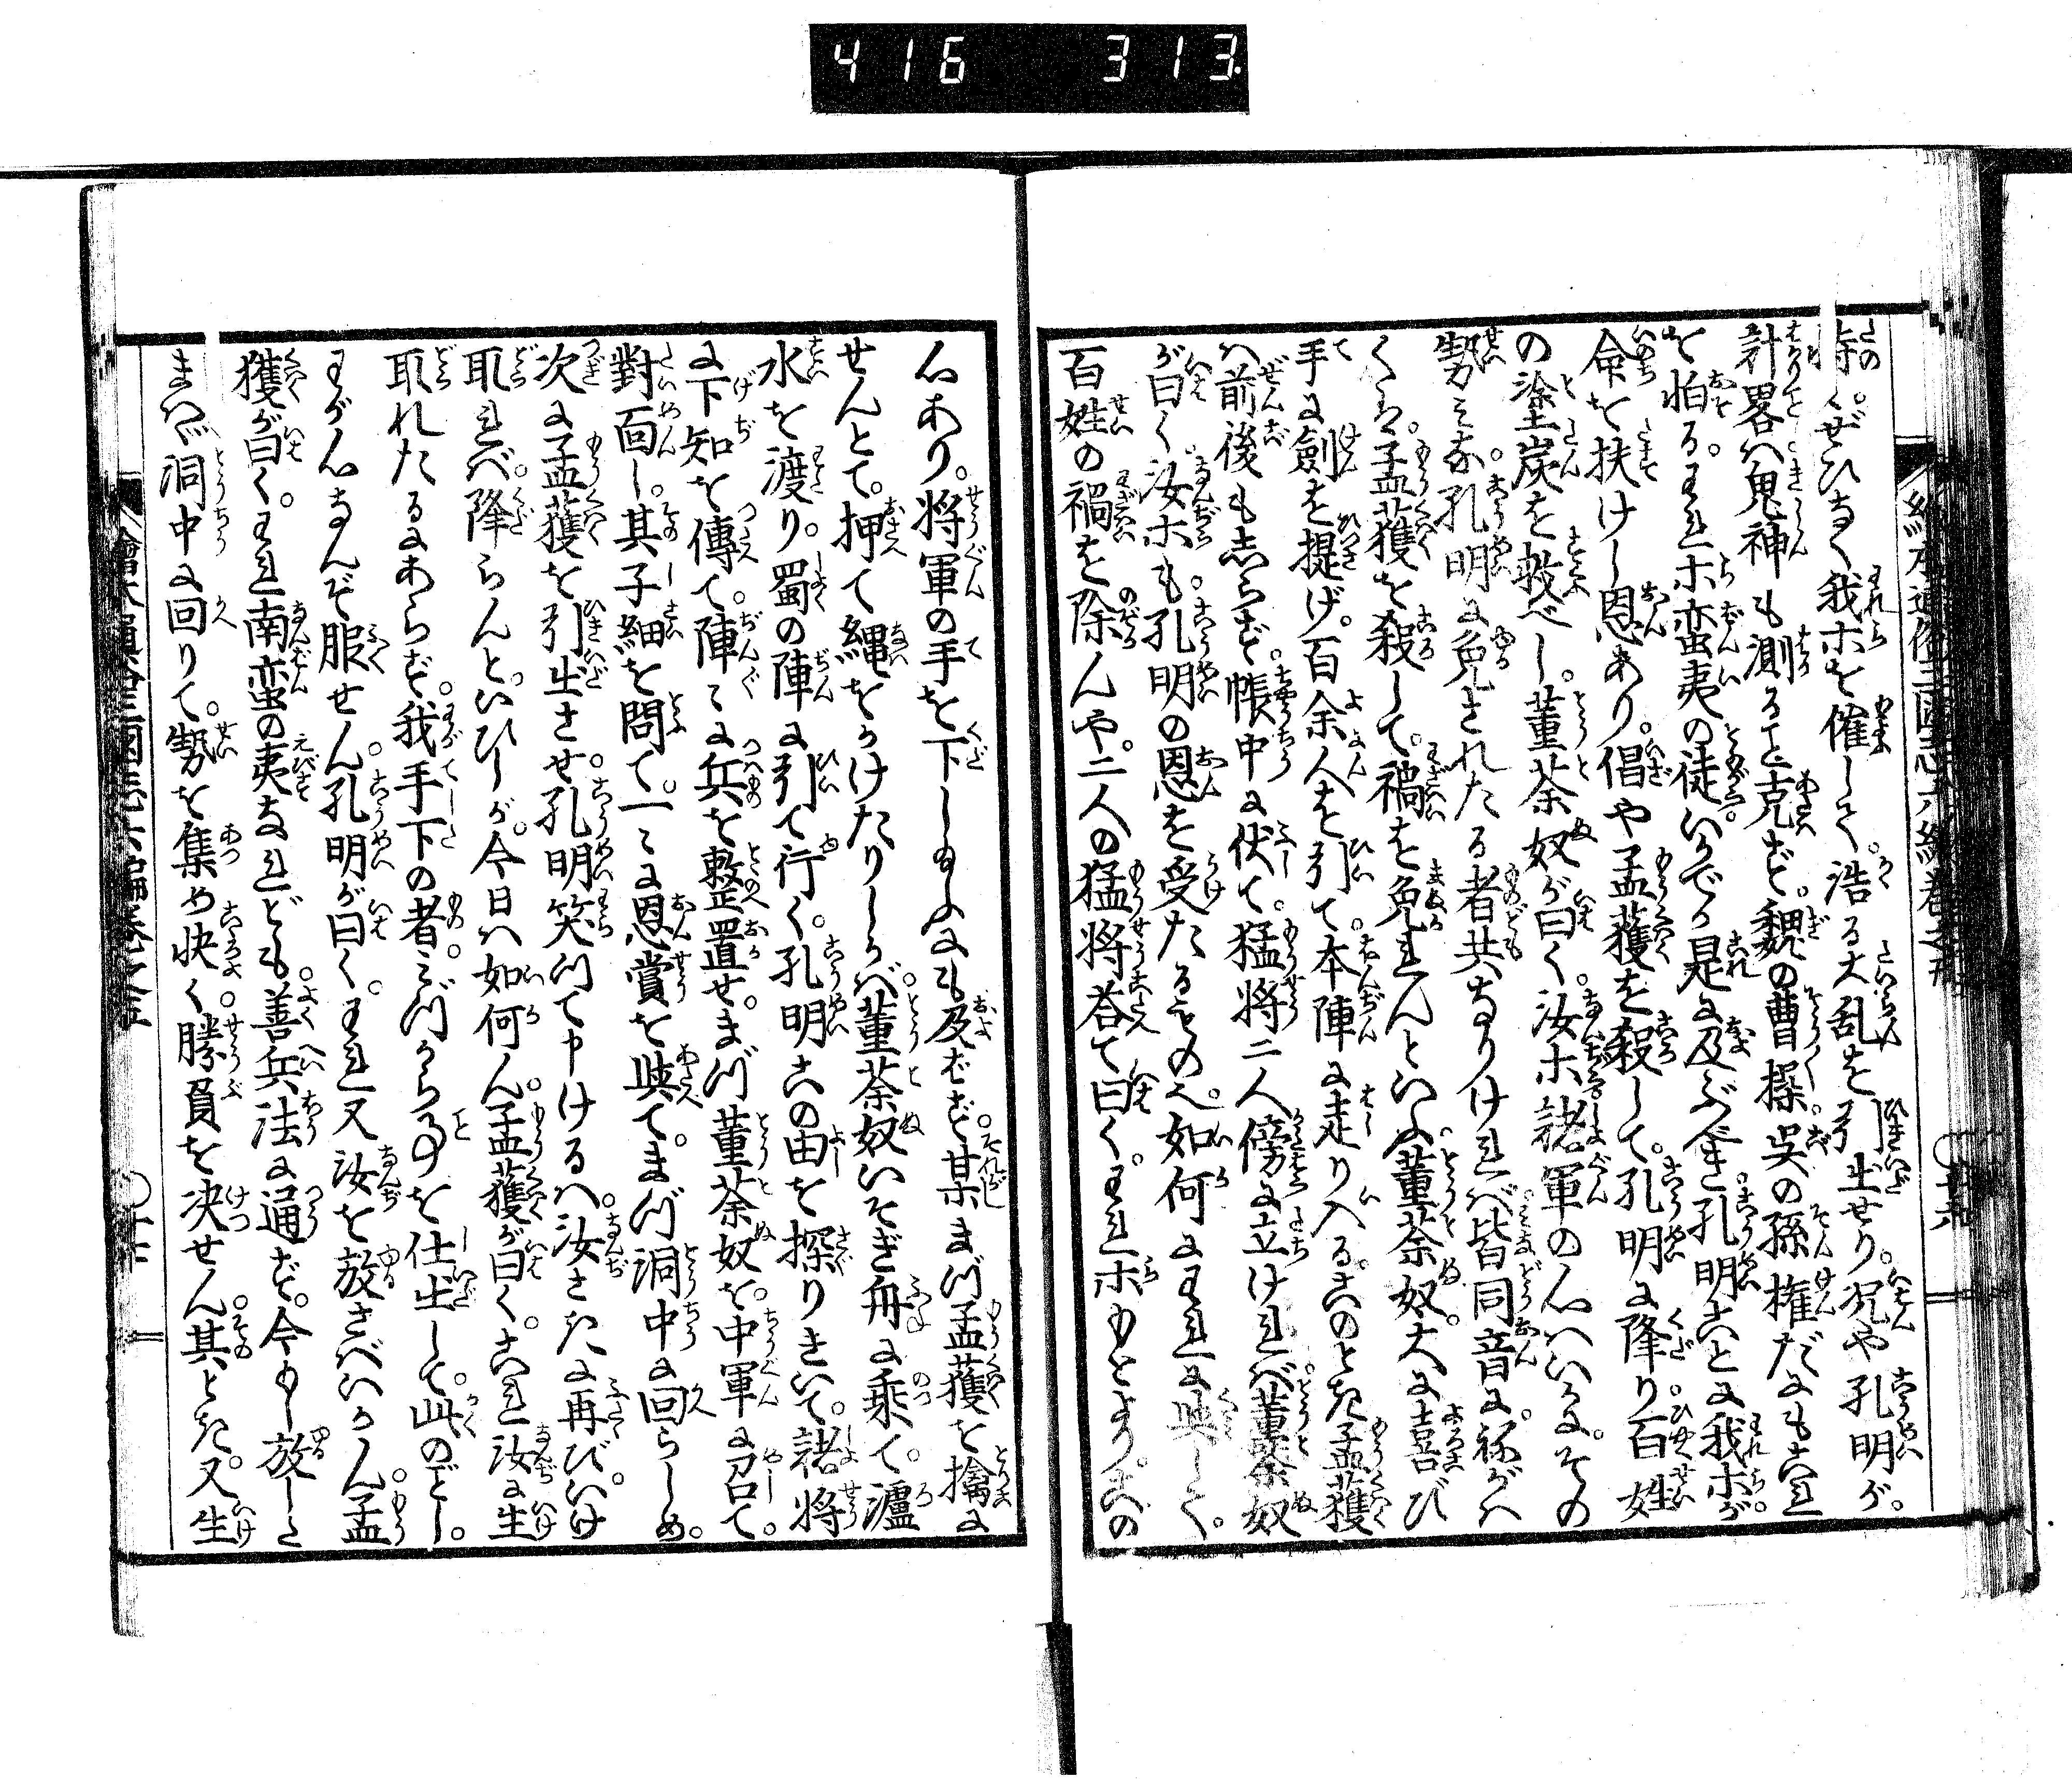 416 313
恃くぜひなく我ホを催して。浩る大乱を引出せり。况や孔明が。
計畧ハ鬼神も測ること克ず。魏の曹操。呉の孫権だにも是
を怕る。われホ蛮夷の徒いかでか是に及ぶべき孔明ことに我ホが
命を扶けし恩あり。倡や孟獲を殺して。孔明に降り百姓
の塗炭を救べし。董荼奴が曰く。汝ホ諸軍の心ハいかに。その
勢みな孔明に免されたる者共なりけれバ皆同音に。祢がハ
くハ。孟獲を殺して。禍を免れんといふ董荼奴。大に喜び
手に劍を提げ。百余人を引て。本陣に走り入る。このとき孟獲
ハ前後もしらず。帳中に伏て。猛将二人傍に立けれバ董荼奴
が曰く。汝ホも。孔明の恩を受たるもの。如何にわれに与して。
百姓の禍を除んや。二人の猛将荅て曰く。われホもとより。この
心あり。将軍の手を下し給ふにも及ばず。某まづ孟獲を擒に
せんとて。押て縄をかけたりしかバ。董荼奴いそぎ舟に乗て。瀘
水を渡り。蜀の陣に引て行く。孔明この由を探りきいて。諸将
に下知を傳て。陣々に兵を整置せ。まづ董荼奴を。中軍に召て。
對面し。其子細を問て。一々に恩賞を與て。まづ洞中に回らしめ。
次に孟獲を引出させ。孔明笑って申けるハ。汝さきに再び。いけ
取れバ。降らんと。いひしが。今日ハ如何ん。孟獲が曰く。これ汝に生
取れたるにあらず。我手下の者。みづから事を仕出して。此のごとし。
わが心なんぞ服せん。孔明が曰く。われ又汝を放さバいかん。孟
獲が曰く。われ南蛮の夷なれども。善兵法に通ず。今もし放し玉
まハバ洞中に回りて。勢を集め快く。勝負を决せん。其とき。又生